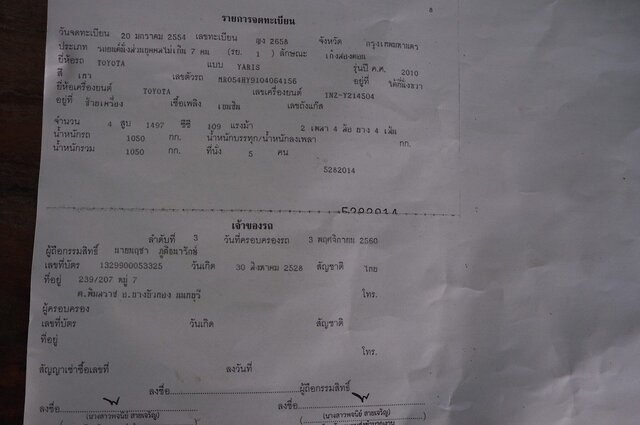 8
รายการจดทะเบียน
วันจดทะเบียน 20 มกราคม 2554 เลขทะเบียน ญง 2658 จังหวัด กรุงเทพมหานคร
ประเภท รถยนต์นั่งส่วนบุคคลไม่เกิน 7 คน (รย. 1) ลักษณะ เก๋งสองตอน
ยี่ห้อรถ TOYOTA แบบ YARIS รุ่นปี ค.ศ. 2010
สี เทา เลขตัวรถ MR054HY9104064156 อยู่ที่
ยี่ห้อเครื่องยนต์ TOYOTA เลขเครื่องยนต์ 1NZ-Y214504
อยู่ที่ ซ้ายเครื่อง เชื้อเพลิง เบนซิน เลขถังแก๊ส
จำนวน 4 สูบ 1497 ซีซี 109 แรงม้า 2 เพลา 4 ล้อ ยาง 4 เส้น
น้ำหนักรถ 1050 กก. น้ำหนักบรรทุก/น้ำหนักลงเพลา กก.
น้ำหนักรวม 1050 กก. ที่นั่ง 5 คน
5282014
5282014
เจ้าของรถ
ลำดับที่ 3 วันที่ครอบครองรถ 3 พฤศจิกายน 2560
ผู้ถือกรรมสิทธิ์
เลขที่บัตร 1329900053325 วันเกิด 30 สิงหาคม 2528 สัญชาติ ไทย
ที่อยู่ 239/207 หมู่ 7
ต.พิมลราช อ.บางบัวทอง นนทบุรี โทร.
ผู้ครอบครอง
เลขที่บัตร วันเกิด สัญชาติ
ที่อยู่
โทร.
สัญญาเช่าซื้อเลขที่ ลงวันที่
ลงชื่อ ผู้ถือกรรมสิทธิ์
ลงชื่อ ลงชื่อ
(นางสาวพจนีย์ สายเจริญ) (นางสาวพจนีย์ สายเจริญ)